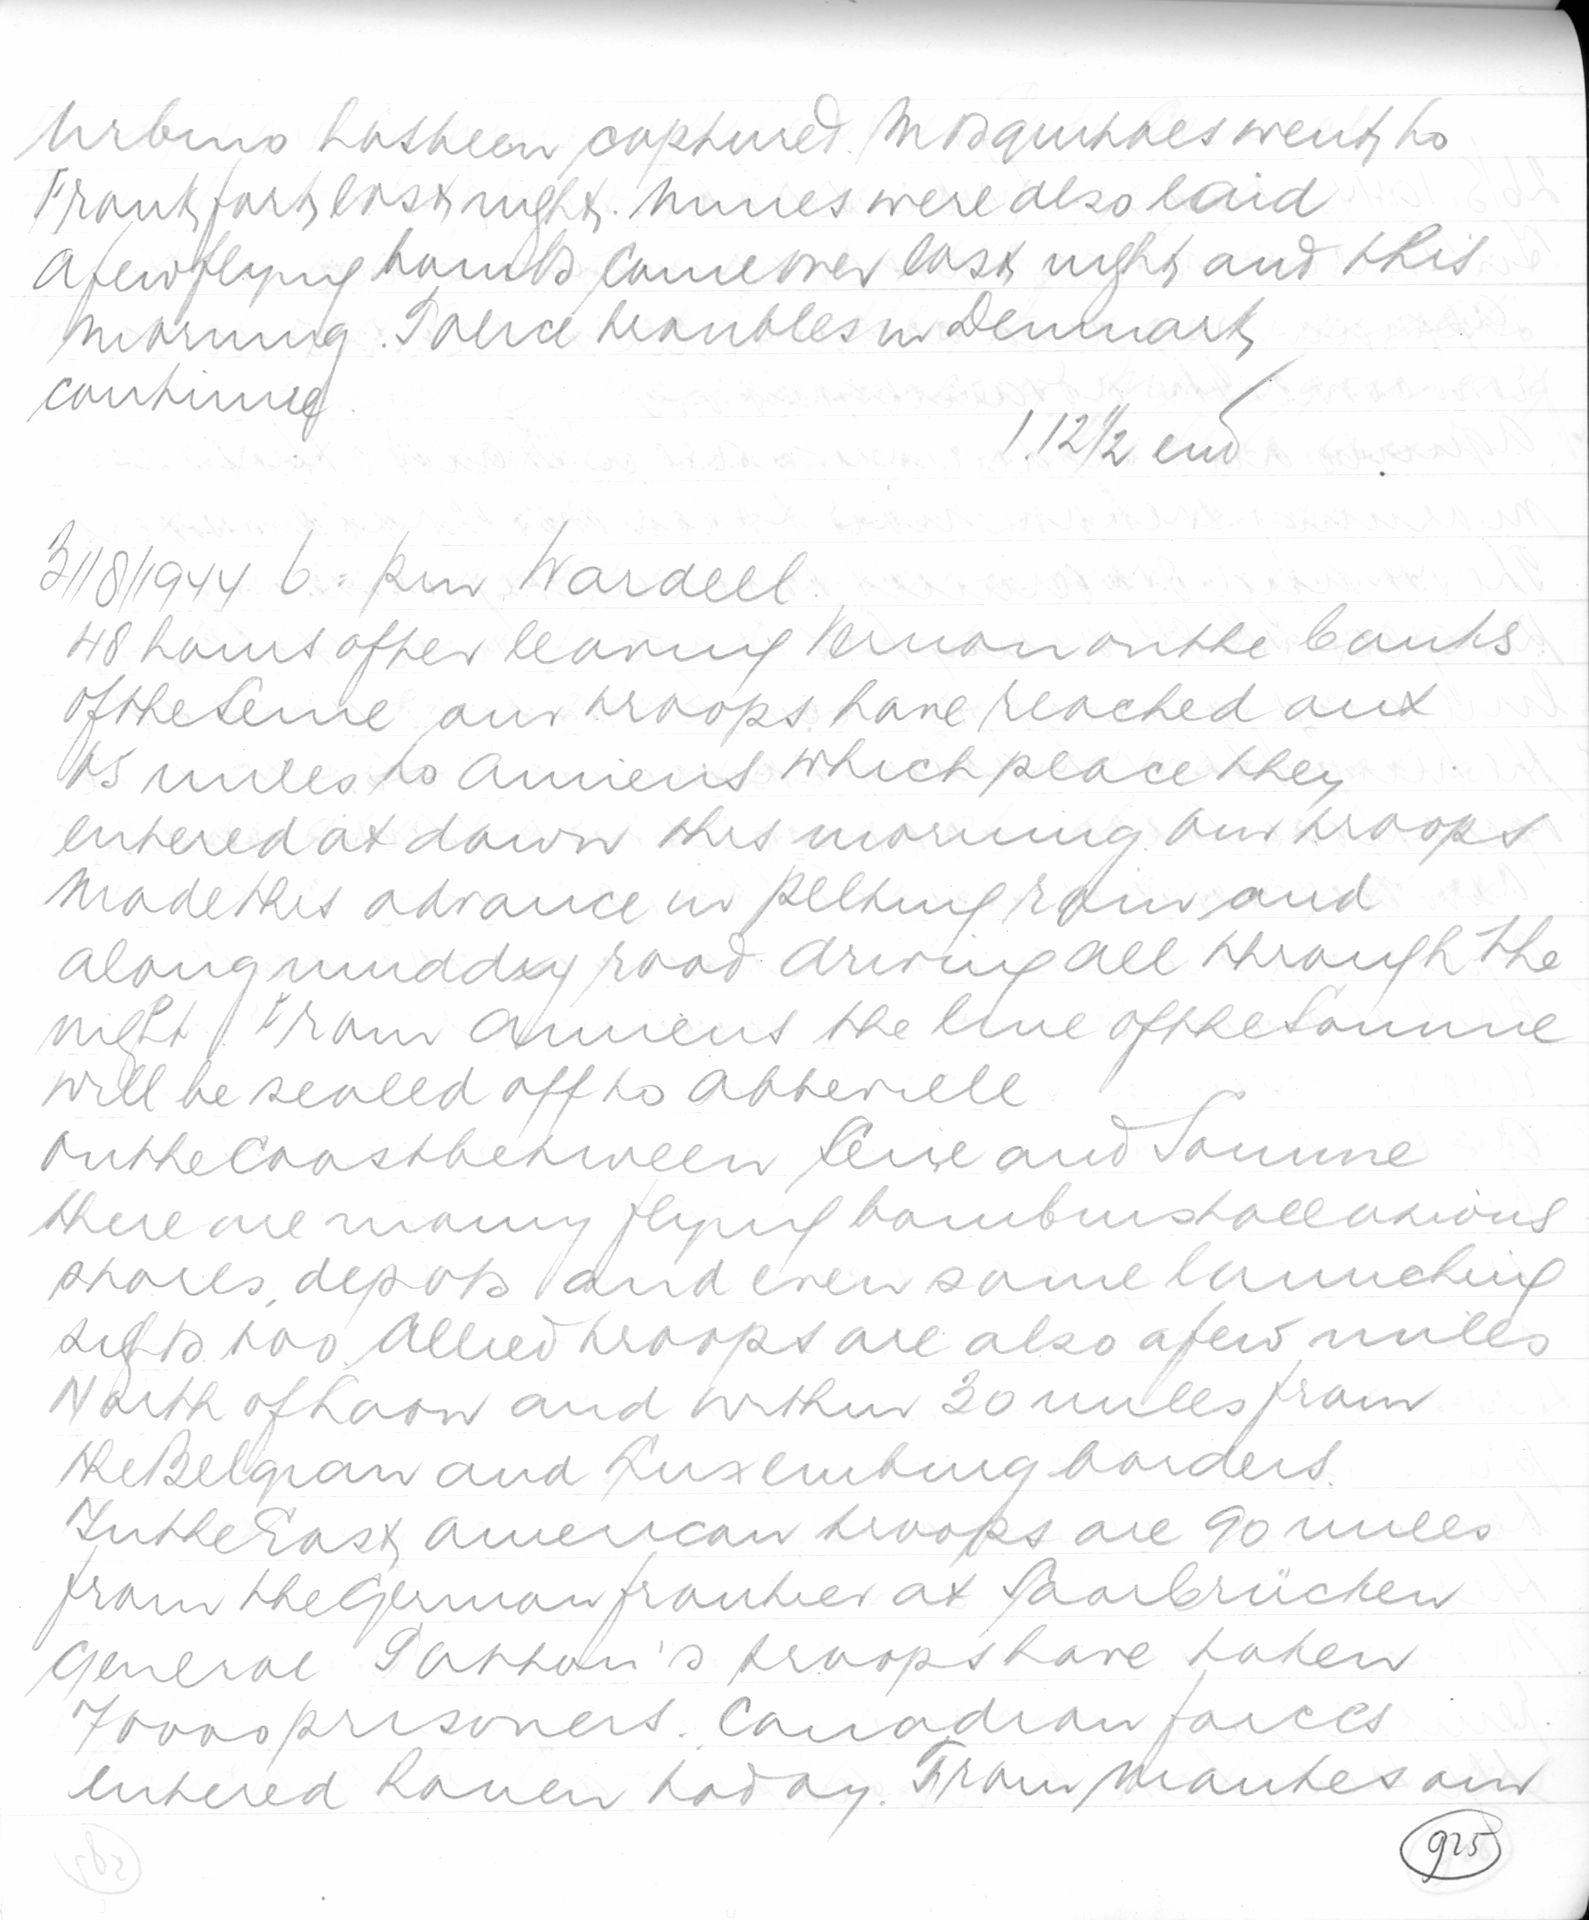 Urbino has been captured. Mosquitoes went to
Frankfort last night. Mines were also laid
A few flying bombs came over last night and this
morning. Police troubles in Denmark
continue
1.12 1/2 end
31/8/1944 6 = pm Wardell
48 hours after leaving Vernon on the banks
of the Seine our troops have reached out
65 miles to Amiens which place they
entered at dawn this morning. Our troops
made this advance in pelting rain and
along muddy road driving all through the
night. From Amiens the line of the Somme
will be sealed off to Abbeville
On the Coast between Seine and Somme
there are many flying bomb installations
stores, depots and even some launching
sights too. Allied troops are also a few miles
North of Laon and within 30 miles from
the Belgian and Luxemburg borders.
In the East American troops are 90 miles
from the German frontier at Saarbrücken
General Patton's troops have taken
70000 prisoners. Canadian forces
entered Rouen today. From Mantes our
925